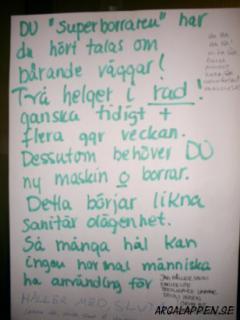 DU "Superborraren" har
du hört talas om
bärande väggar!
Två helger i rad!
ganska tidigt +
flera ggr veckan.
Dessutom behöver DU
ny maskin o borrar.
Detta börjar likna
sanitär olägenhet.
Så många hål kan
ingen normal människa
ha användning för
HÅLLER MED
ARGALAPPEN.SE